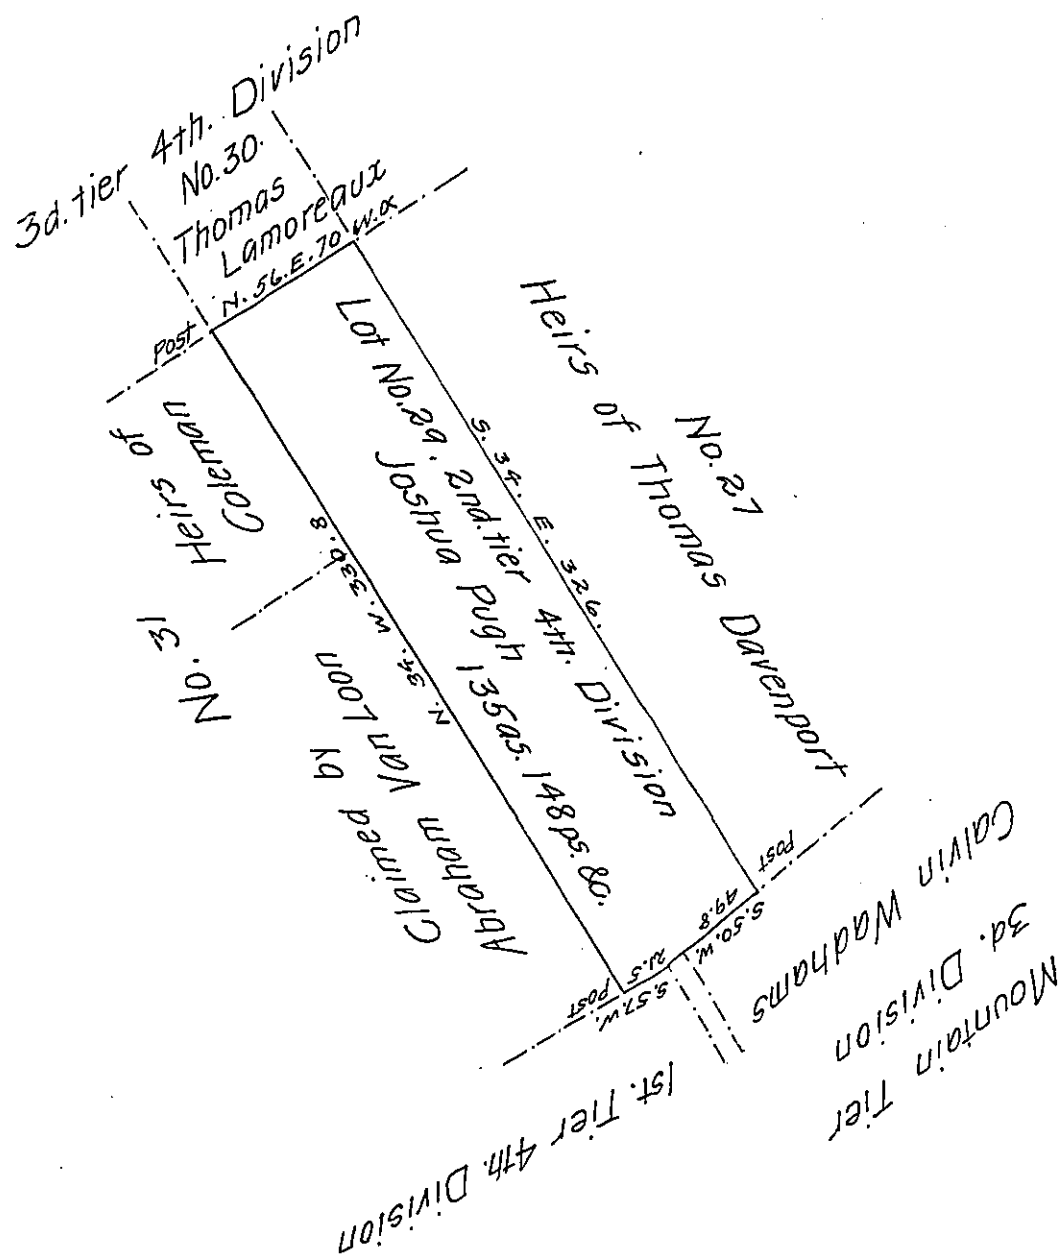 3d. tier 4th. Division
No.30.
Thomas
Lamoreaux
N. 56. E. 70 W.α
Post
Heirs of
Coleman
No. 31
N. 34. W. 330. 8
Claimed by
Abraham Van Loon
Lot No.29. 2nd.tier 4th. Division
Joshua Pugh 135as. 148ps. &c.
S. 34. E. 326.
No. 27
Heirs of Thomas Davenport
Post
49.8
S. 50. W.
21.5
S. 57. W.
Post
Calvin Wadhams
3d. Division
Mountain Tier
1st. Tier 4th. Division